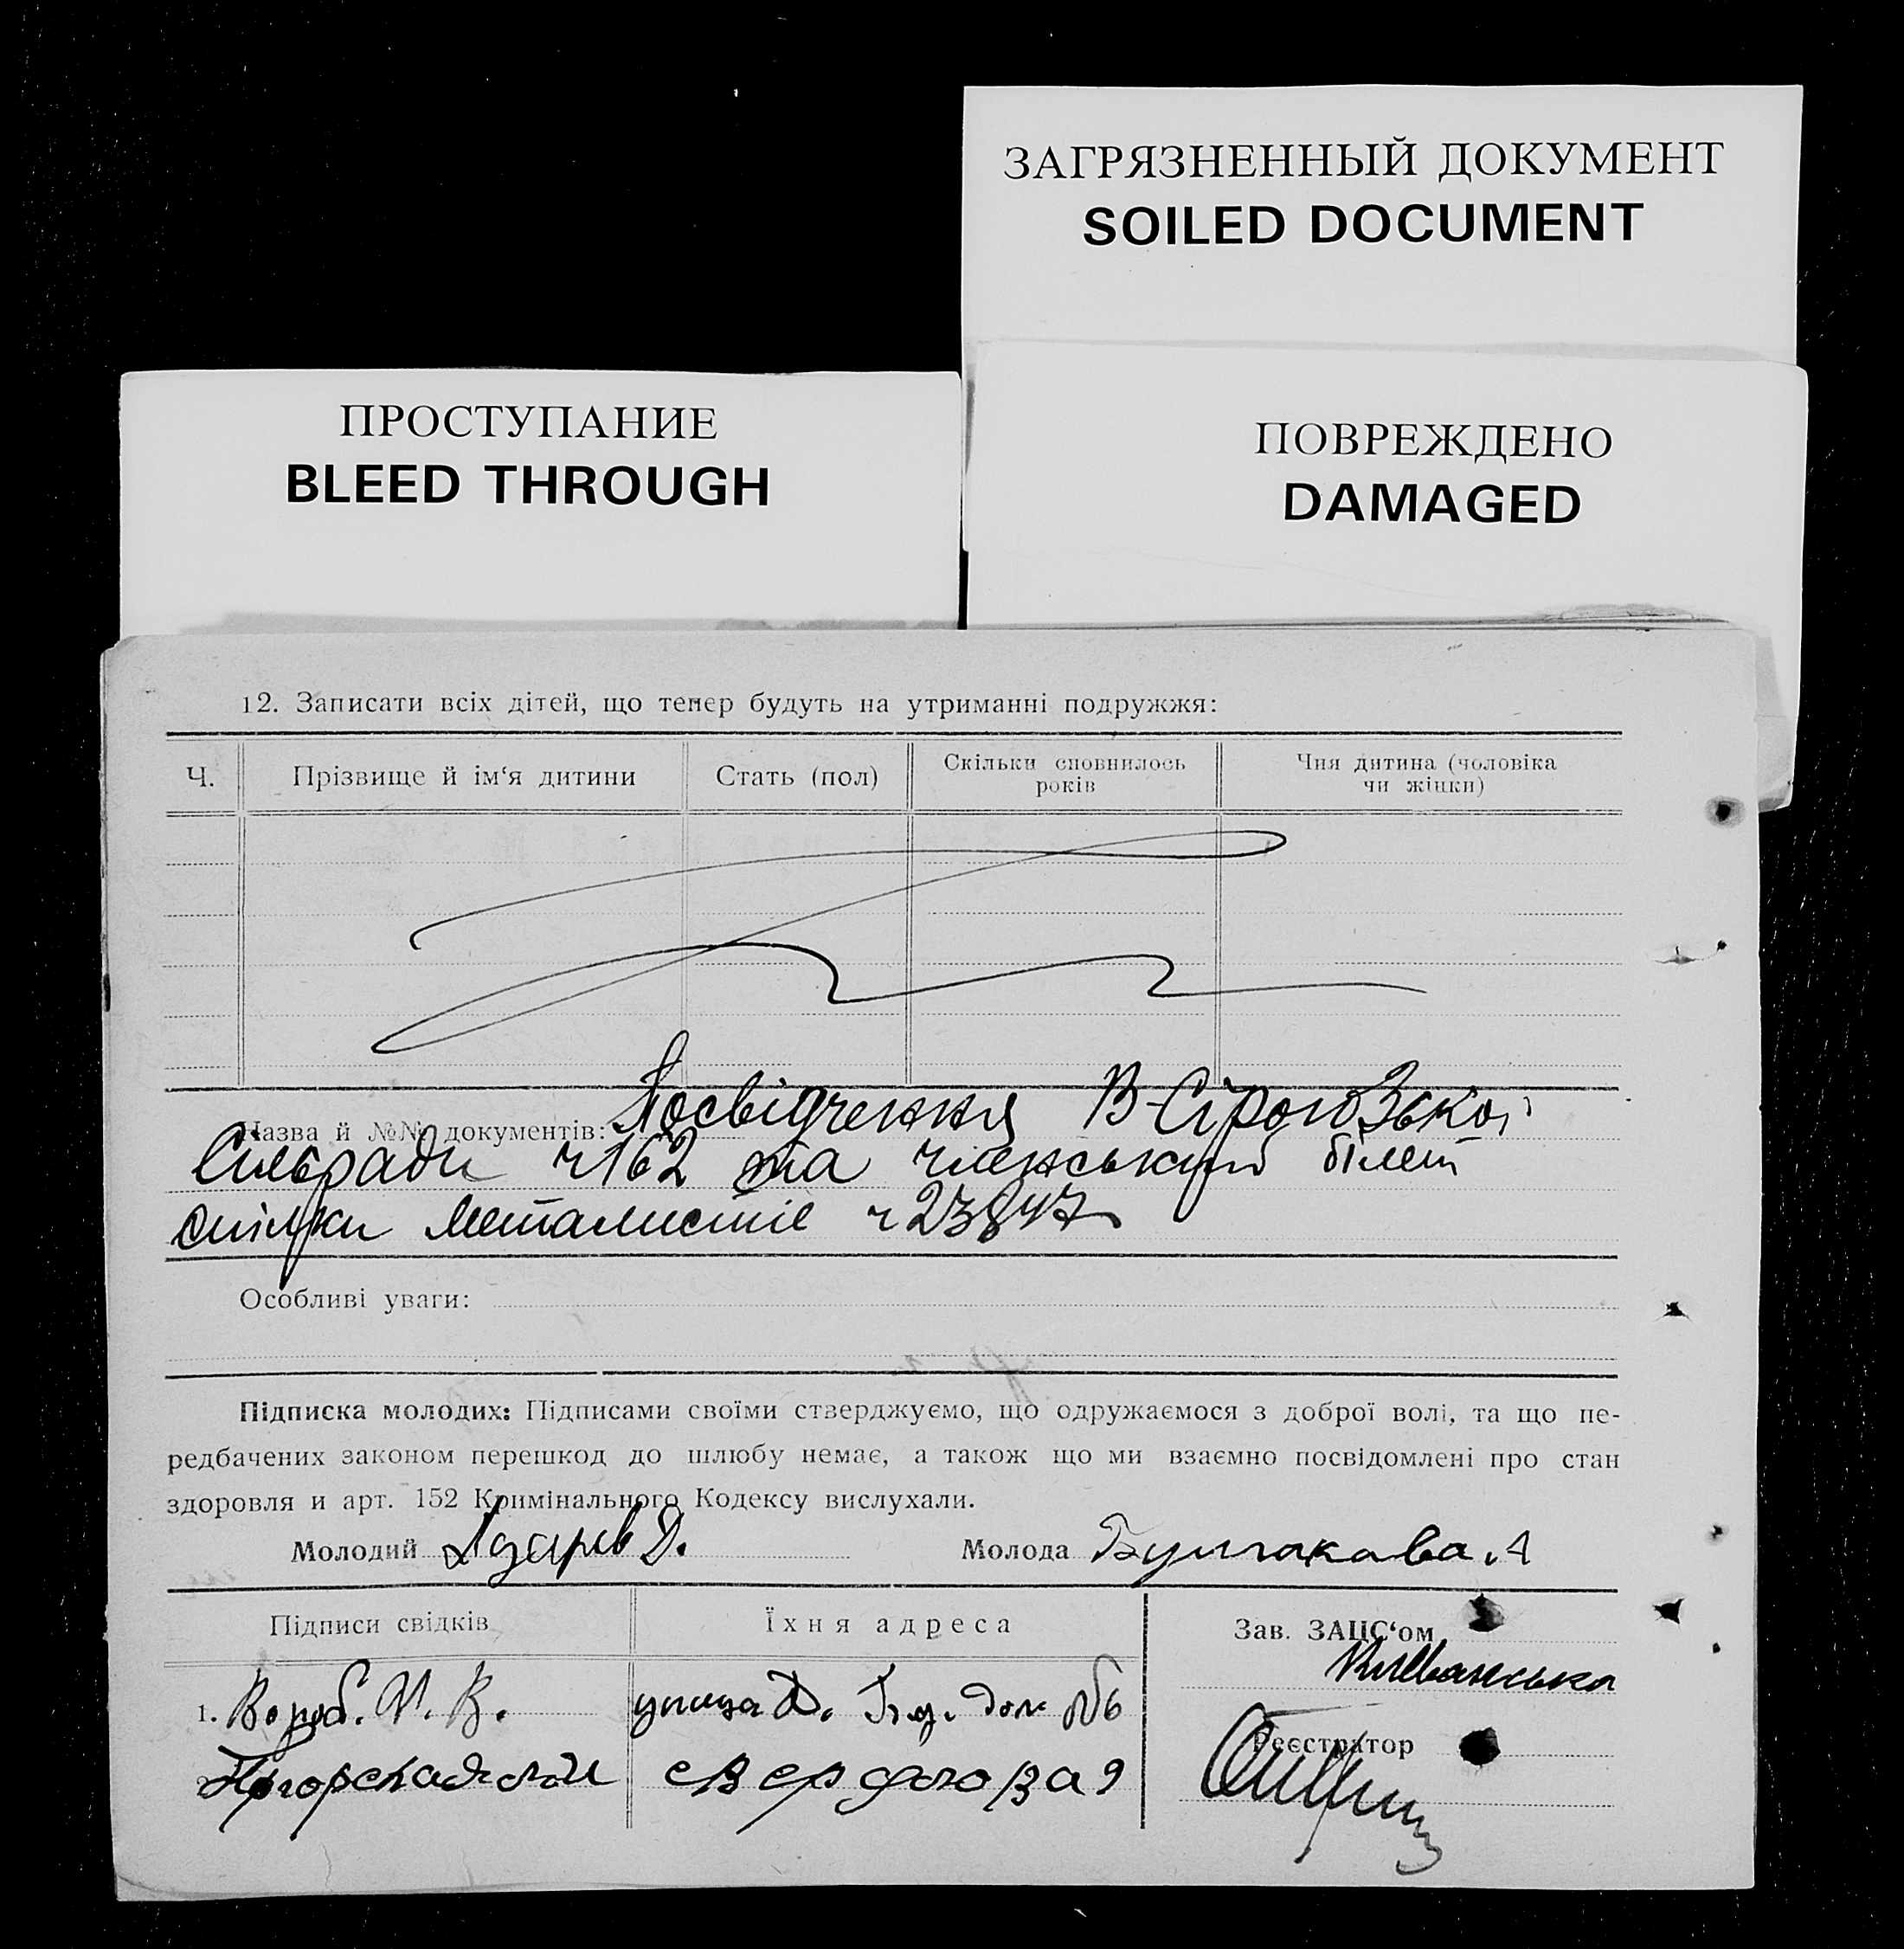 ЗАГРЯЗНЕННЫЙ ДОКУМЕНТ
SOILED DOCUMENT
ПРОСТУПАНИЕ
BLEED THROUGH
ПОВРЕЖДЕНО
DAMAGED
12. Записати всіх дітей, що тепер будуть на утриманні подружжя:
Ч. Прізвище й ім‘я дитини Стать (пол) Скільки сповнилось років Чия дитина (чоловіка чи жінки)
Назва й №№ документів: Посвідчення
Сильради ч162 та членський білет
спілки Металистів ч 23847
Особливі уваги:
Підписка молодих: Підписами своїми стверджуємо, що одружаємося з доброї волі, та що пе-
редбачених законом перешкод до шлюбу немає, а також що ми взаємно посвідомлені про стан
здоровля и арт. 152 Кримінального Кодексу вислухали.
Молодий Азаров Д. Молода Булгакова. А
Підписи свідків Їхня адреса Зав. ЗАЦС‘ом
1. улица
Реєстратор
2.